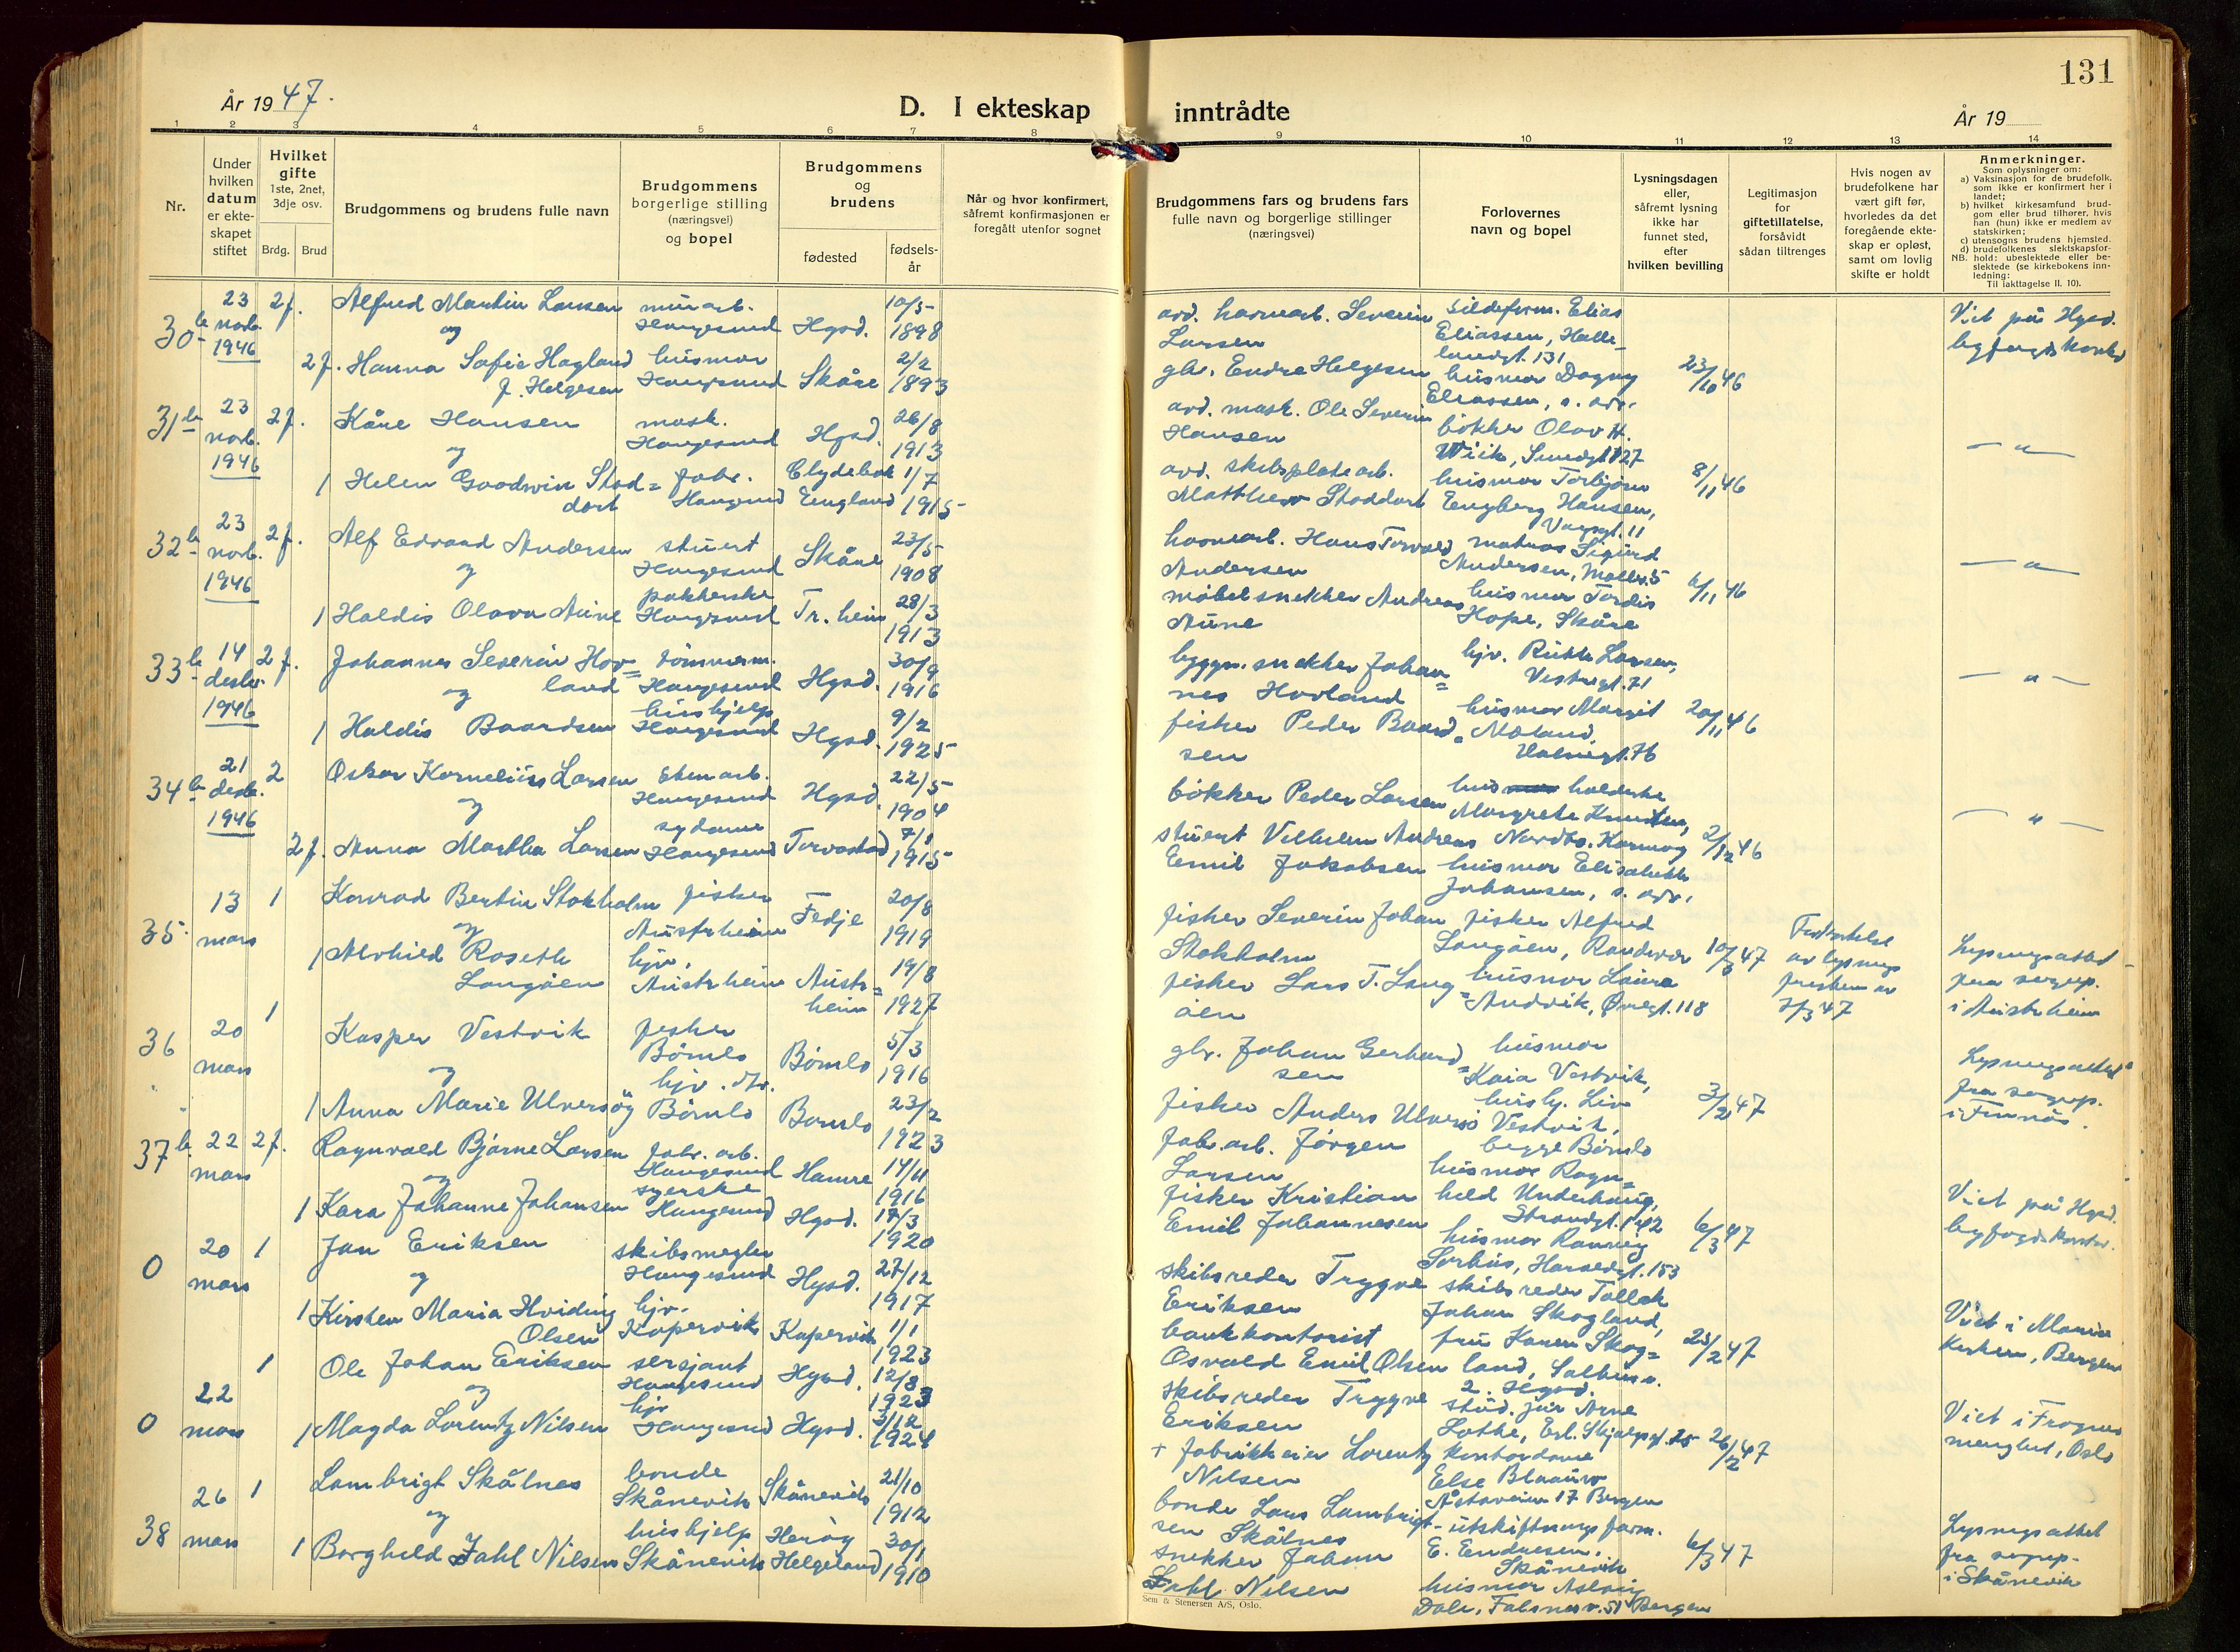 131
År 1947.
D. I ekteskap inntrådte
År 19
1 2 3 4 5 6 7 8 9 10 11 12 13 14
Nr.
Under
hvilken
datum
er ekte-
skapet
stiftet
Hvilket
gifte
1ste, 2net,
3dje osv.
Brdg. Brud
Brudgommens og brudens fulle navn
Brudgommens
borgerlige stilling
(næringsvei)
og bopel
Brudgommens
og
brudens
fødested
fødsels-
år
Når og hvor konfirmert,
såfremt konfirmasjonen er
foregått utenfor sognet
Brudgommens fars og brudens fars
fulle navn og borgerlige stillinger
(næringsvei)
Forlovernes
navn og bopel
Lysningsdagen
eller,
såfremt lysning
ikke har
funnet sted,
efter
hvilken bevilling
Legitimasjon
for
giftetillatelse,
forsåvidt
sådan tiltrenges
Hvis nogen av
brudefolkene har
vært gift før,
hvorledes da det
foregående ekte-
skap er opløst,
samt om lovlig
skifte er holdt
Anmerkninger.
Som oplysninger om:
a) Vaksinasjon for de brudefolk,
som ikke er konfirmert her i
landet;
b) hvilket kirkesamfund brud-
gom eller brud tilhører, hvis
han (hun) ikke er medlem av
statskirken;
c) utensogns brudens hjemsted.
d) brudefolkenes slektskapsfor-
NB. hold: ubeslektede eller be-
slektede (se kirkebokens inn-
ledning:
Til iakttagelse II. 10).
30b
23
novb.
1946
2f.
Alfred Martin Larsen
og
2f. Hanna Sofie Hagland
f. Helgesen
murarb.
Haugesund
husmor
Haugesund
Hgsd.
Skåre
10/5
1898
2/2
1893
avd. havnearb. Severin
Larsen
gbr. Endre Helgesen
sildeform. Elias
Eliassen, Halle-
landgt. 131
husmor Dagny
Eliassen, s. adr.
23/10 46
Viet på Hgsd.
byfogdkontor
31b
23
novb.
1946
2f.
Kåre Hansen
og
1 Helen Goodwin Stod=
dart
mask.
Haugesund
fabr.
Haugesund
Hgsd.
Clydebak
England
26/8
1913
1/7
1915
avd. mask. Ole Severin
Hansen
avd. skibsplatearb.
Matthew Stoddart
bøkker Olav H.
Wiik,
husmor Torbjørn
Engberg Hansen,
8/11 46
— " —
32b
23
novb.
1946
2f.
Alf Edvard Andersen
og
1 Haldis Olava Aune
stuert
Haugesund
pakkerske
Haugesund
Skåre
Tr. heim
23/5
1908
28/3
1913
havnearb. Hans Torvald
Andersen
møbelsnekker Andreas
Aune
matros Sigurd
Andersen,
husmor Tordis
Hope, Skåre
6/11 46
— " —
33b
14
desbr.
1946
2f.
Johannes Severin Hov=
land
og
1 Haldis Baardsen
tømmerm.
Haugesund
hushjelp
Haugesund
Hgsd.
Hgsd.
30/9
1916
9/2
1925
byggn. snekker Johan=
nes Hovland
fisker Peder Baard=
sen
hjv. Ruth Larsen,
Vestregt. 71
husmor Margit
20/11 46
— " —
34b
21
desb.
1946
2
Oskar Kornelius Larsen
og
2f. Anna Martha Larsen
Haugesund
sydame
Haugesund
Hgsd.
Torvastad
22/5
1904
7/1
1915
bøkker Peder Larsen
stuert Vilhelm Andreas
Emil Jakobsen
husholderske
Margrethe Knudsen,
Nordbø, Karmøy
husmor Elisabeth
Johansen, s. adr.
2/12 46
— " —
35.
13
mars
1
Konrad Bertin Stokholm
og
1 Alvhild Roseth
Langøen
fisker
Austrheim
hjv.
Austrheim
Fedje
Austr=
heim
20/8
1919
19/8
1927
fisker Severin Johan
Stokholm
fisker Lars T. Lang=
øen
fisker Alfred
Langøen,
husmor Laura
Andvik, Øvregt. 118
10/3 47
av lysnings
fristen av
7/3 47
Lysningsattest
fra sogep.
i Austrheim
36
20
mars
1
Kasper Vestvik
og
1 Anna Marie Ulversøy
fisker
Bømlo
hjv.
Bømlo
Bømlo
Bømlo
5/3
1916
23/2
1923
gbr. Johan Gerhard=
sen
fisker Anders Ulversø
husmor
Kaia Vestvik,
hushj. Liv
Vestvik,
begge Bømlo
3/2 47
Lysningsattest
fra sogep.
i Finnås.
37b
22
mars
2f.
Ragnvald Bjarne Larsen
og
1 Kara Johanne Johansen
fabr. arb.
Haugesund
syerske
Haugesund
Hamre
Hgsd.
14/11
1916
17/3
1920
fab. arb. Jørgen
Larsen
fisker Kristian
Emil Johannesen
husmor Ragn=
hild Underhaug,
Strandgt. 142
husmor Rannvig
Sørhus, Haraldsgt. 153
6/3 47
Viet på Hgsd.
byfogdkontor.
0
20
mars
1
Jan Eriksen
og
1 Kirsten Maria Hviding
Olsen
skibsmegler
Haugesund
hjv.
Kopervik
Hgsd.
Kopervik
27/12
1917
1/1
1923
skibsreder Trygve
Eriksen
bankkontorist
Osvald Emil Olsen
skibsreder Tollak
Johan Skogland,
fru Karen Skog=
land,
2. Hgsd.
23/2 47
Viet i Marie
kirken, Bergen
0
22
mars
1
Ole Johan Eriksen
og
1 Magda Lorentz Nilsen
sersjant
Haugesund
hjv
Haugesund
Hgsd.
Hgsd.
12/8
1923
3/12
1924
skibsreder Trygve
Eriksen
+ fabrikkeier Lorentz
Nilsen
stud. jur Arne
Lothe, Erl. Skjalgsgt. 25
kontordame
Else Blaauw
17 Bergen
26/2 47
Viet i Frogner
menighet, Oslo
38
26
mars
1
Lambrigt Skålnes
og
1 Borghild Zahl Nilsen
bonde
Skånevik
hushjelp
Skånevik
Skånevik
Herøy
Helgeland
21/10
1912
30/1
1910
bonde Lars Lambrigt-
sen Skålnes
snekker Johan
Zahl Nilsen
utskiftningsform.
E. Endresen,
Skånevik
husmor Aslaug
Dale, Falsnesv. 51 Bergen
6/3 47
Lysningsattest
fra sogep.
i Skånevik
Sem & Stenersen A/S, Oslo.